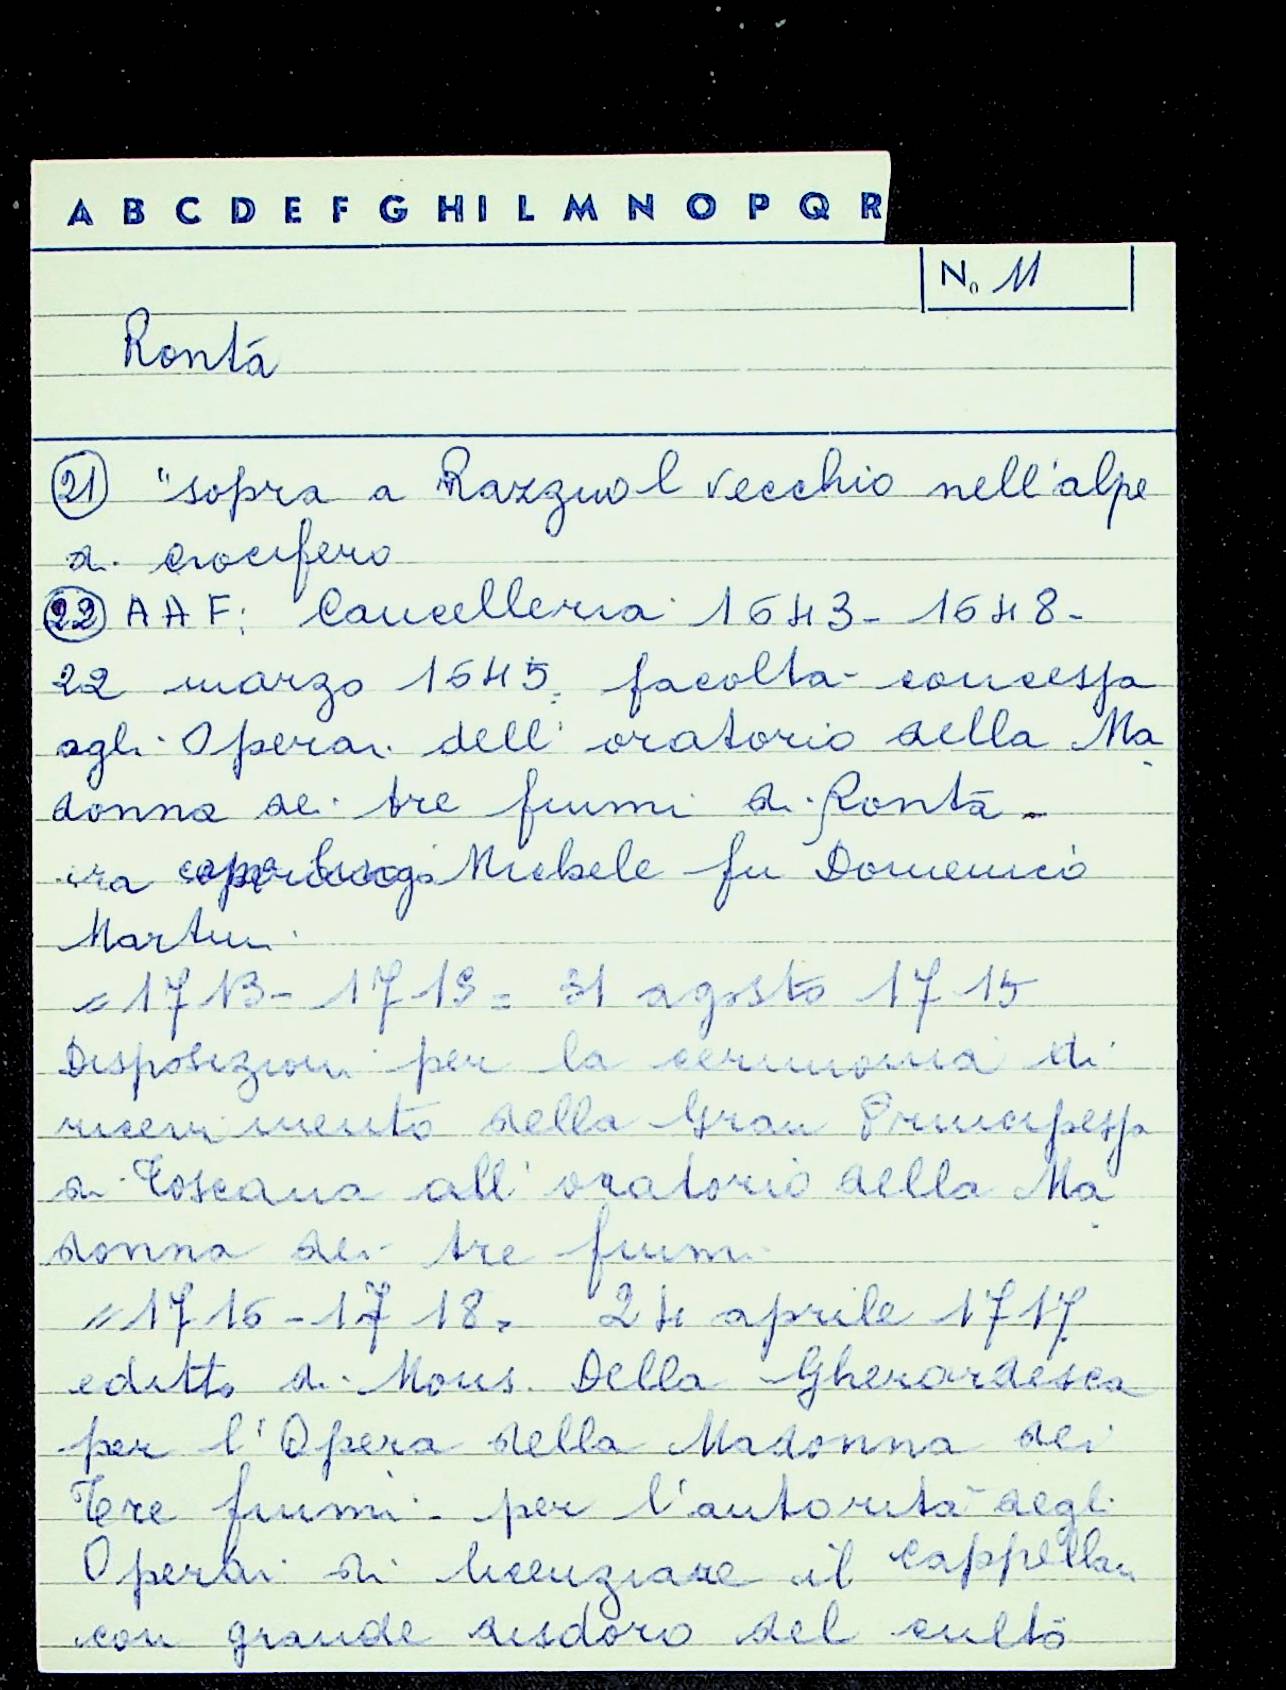 A B C D E F G H I L M N O P Q R
N. 11
Rontà
21 "sopra a Razzuol vecchio nell'alpe
di crocifero
22 AAF: Cancelleria 1643-1648-
22 marzo 1645: facoltà concessa
agli Operai dell'oratorio della Ma
donna dei tre fiumi di Rontà -
era Michele fu Domenico
Martini
" 1713-1719 = 31 agosto 1715
Disposizioni per la cerimonia di
ricevimento della Gran Principessa
di Toscana all'oratorio della Ma
donna dei tre fiumi
" 1716-1718. 24 aprile 1717
editto di Mons. Della Gherardesca
per l'Opera della Madonna dei
Tre fiumi - per l'autorità degli
Operai di licenziare il cappellan
con grande disdoro del culto